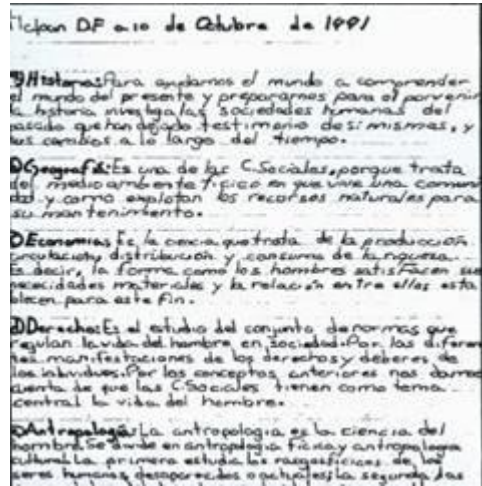 Tlalpan D.F a 10 de Octubre de 1991
Historia: Para ayudarnos el mundo a comprender
el mundo del presente y prepararnos para el porvenir
la historia investiga las sociedades humanas del
pasado que han dejado testimonio de si mismas, y
sus cambios a lo largo del tiempo.
Geografía: Es una de las C.Sociales, porque trata
del medio ambente fisico en que vive una comuni
dad y como explotan los recorsos naturales para
su mantenimiento.
Economia: Es la ciencia que trata de la producción
circulación, distribución y consumo de la riqueza.
Es decir, la forma como los hombres satisfacen sus
necesidades materiales y la relación entre ellos esta
blecen para este fin.
Derecho: Es el estudio del conjunto de normas que
regulan la vida del hombre en sociedad. Por las diferen
tes manifestaciones de los derechos y deberes de
los individuos. Por los conceptos anteriores nos damos
cuenta de que las C.Sociales tienen como tema
central la vida del hombre.
Antropología: La antropologia es la ciencia del
hombre. Se divide en antropologia fisica y antropologia
cultural. La primera estudia los rasgos fisicos de los
seres humanos, desaparecidos o actuales; la segunda las